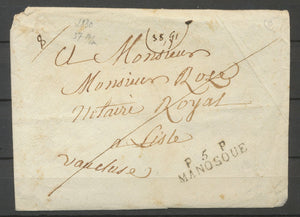 1830
38,91
A Monsieur
Monsieur Roze
Notaire Royal
a Lisle
Vaucluse
P 5 P
MANOSQUE